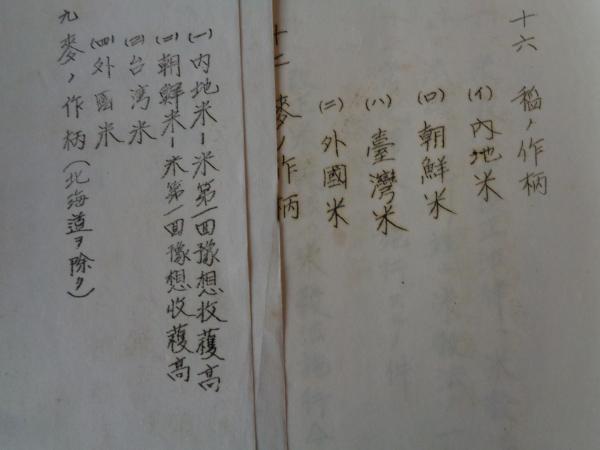 十六 稲ノ作柄
(イ)内地米
(ロ)朝鮮米
(ハ)臺灣米
(ニ)外國米
麥ノ作柄
(一)内地米ー米第一回豫想收穫高
(二)朝鮮米ー米第一回豫想收穫高
(三)台湾米
(四)外国米
九 麥ノ作柄(北海道ヲ除ク)